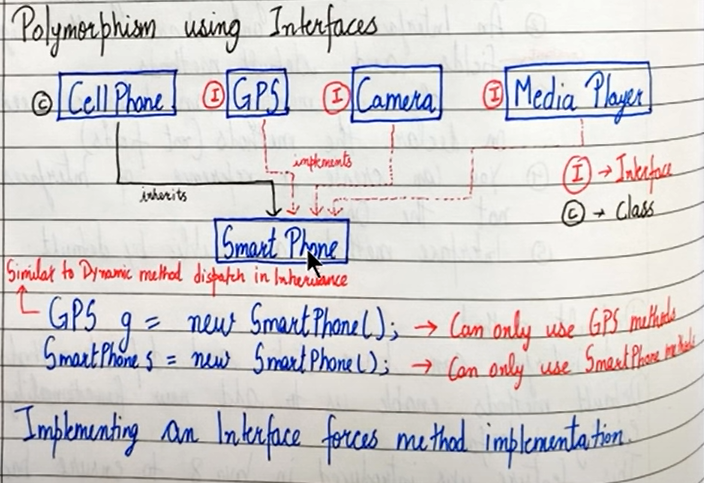 Polymorphism using Interfaces
C Cell Phone I GPS I Camera I Media Player
implements
I → Interface
inherits
C → Class
Smart Phone
Similar to Dynamic method dispatch in Inheritance
GPS g = new SmartPhone(); → Can only use GPS methods
SmartPhone s = new SmartPhone(); → Can only use SmartPhone methods
Implementing an Interface forces method implementation.